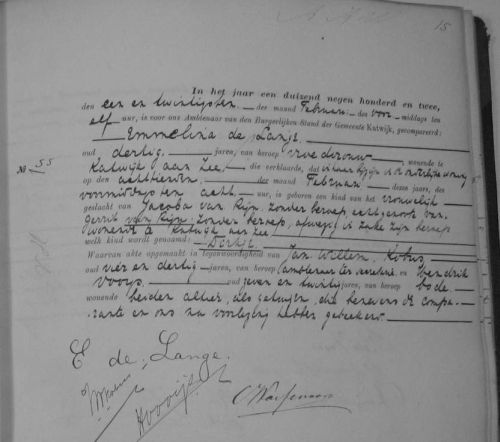 15
In het jaar een duizend negen honderd en twee,
den een en twintigsten der maand Februari des voor middags ten
elf uur, is voor ons Ambtenaar van den Burgerlijken Stand der Gemeente Katwijk, gecompareerd:
Emmelina de Lange
oud dertig jaren, van beroep vroedvrouw wonende te
Katwijk aan Zee, die verklaarde, dat
op den achttienden der maand Februari dezes jaars, des
voormiddags ten acht uur, is geboren een kind van het vrouwelijk
geslacht van Jacoba van Rijn, zonder beroep, echtgenoote van
Gerrit van Rijn, zonder beroep, afwezig
wonende te Katwijk aan Zee
welk kind wordt genaamd: Dirkje
Waarvan akte opgemaakt in tegenwoordigheid van Jan Willem
oud vier en dertig jaren, van beroep ambtenaar ter secretarie en Hendrik
oud zeven en twintig jaren, van beroep bode
wonende beiden alhier, als getuigen, die benevens de compa-
rante en ons na voorlezing hebben geteekend.
No 55
E de Lange.